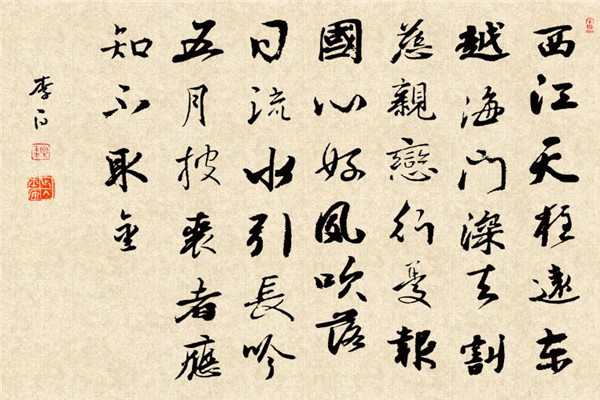 西江天柱遠東
越海門深去割
慈親戀行憂報
國心好風吹落
日流水引長吟
五月披裘者應
知不取金
李